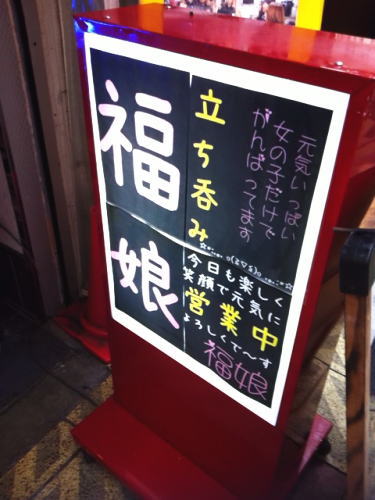 元気いっぱい
女の子だけで
がんばってます
立ち呑み
福娘
今日も楽しく
笑顔で元気に
営業中
よろしくで〜す
福娘